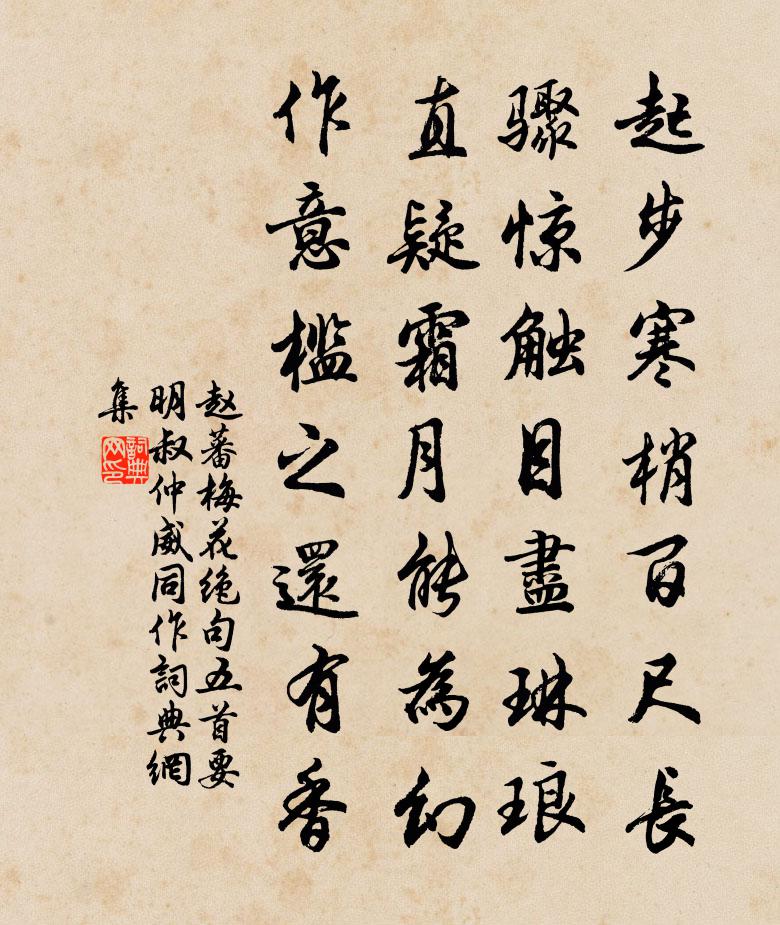 起步寒梢百尺長
骤惊触目盡琳琅
直疑霜月能為幻
作意檻之還有香
赵蕃梅花绝句五首要
明叔仲威同作詞典網
集
詞典網印